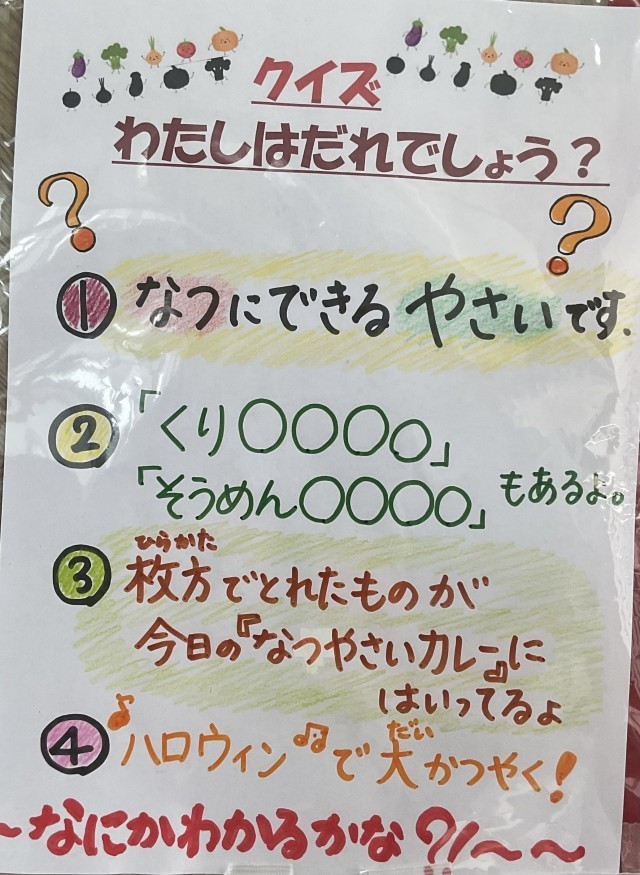 クイズ
わたしはだれでしょう？
? ?
① なつにできる やさいです.
② 「くり〇〇〇〇」
「そうめん〇〇〇〇」もあるよ。
ひらかた
③ 枚方でとれたものが
今日の『なつやさいカレー』に
はいってるよ
だい
④ ♪ハロウィン♫で大かつやく!
～なにかわかるかな?!～～